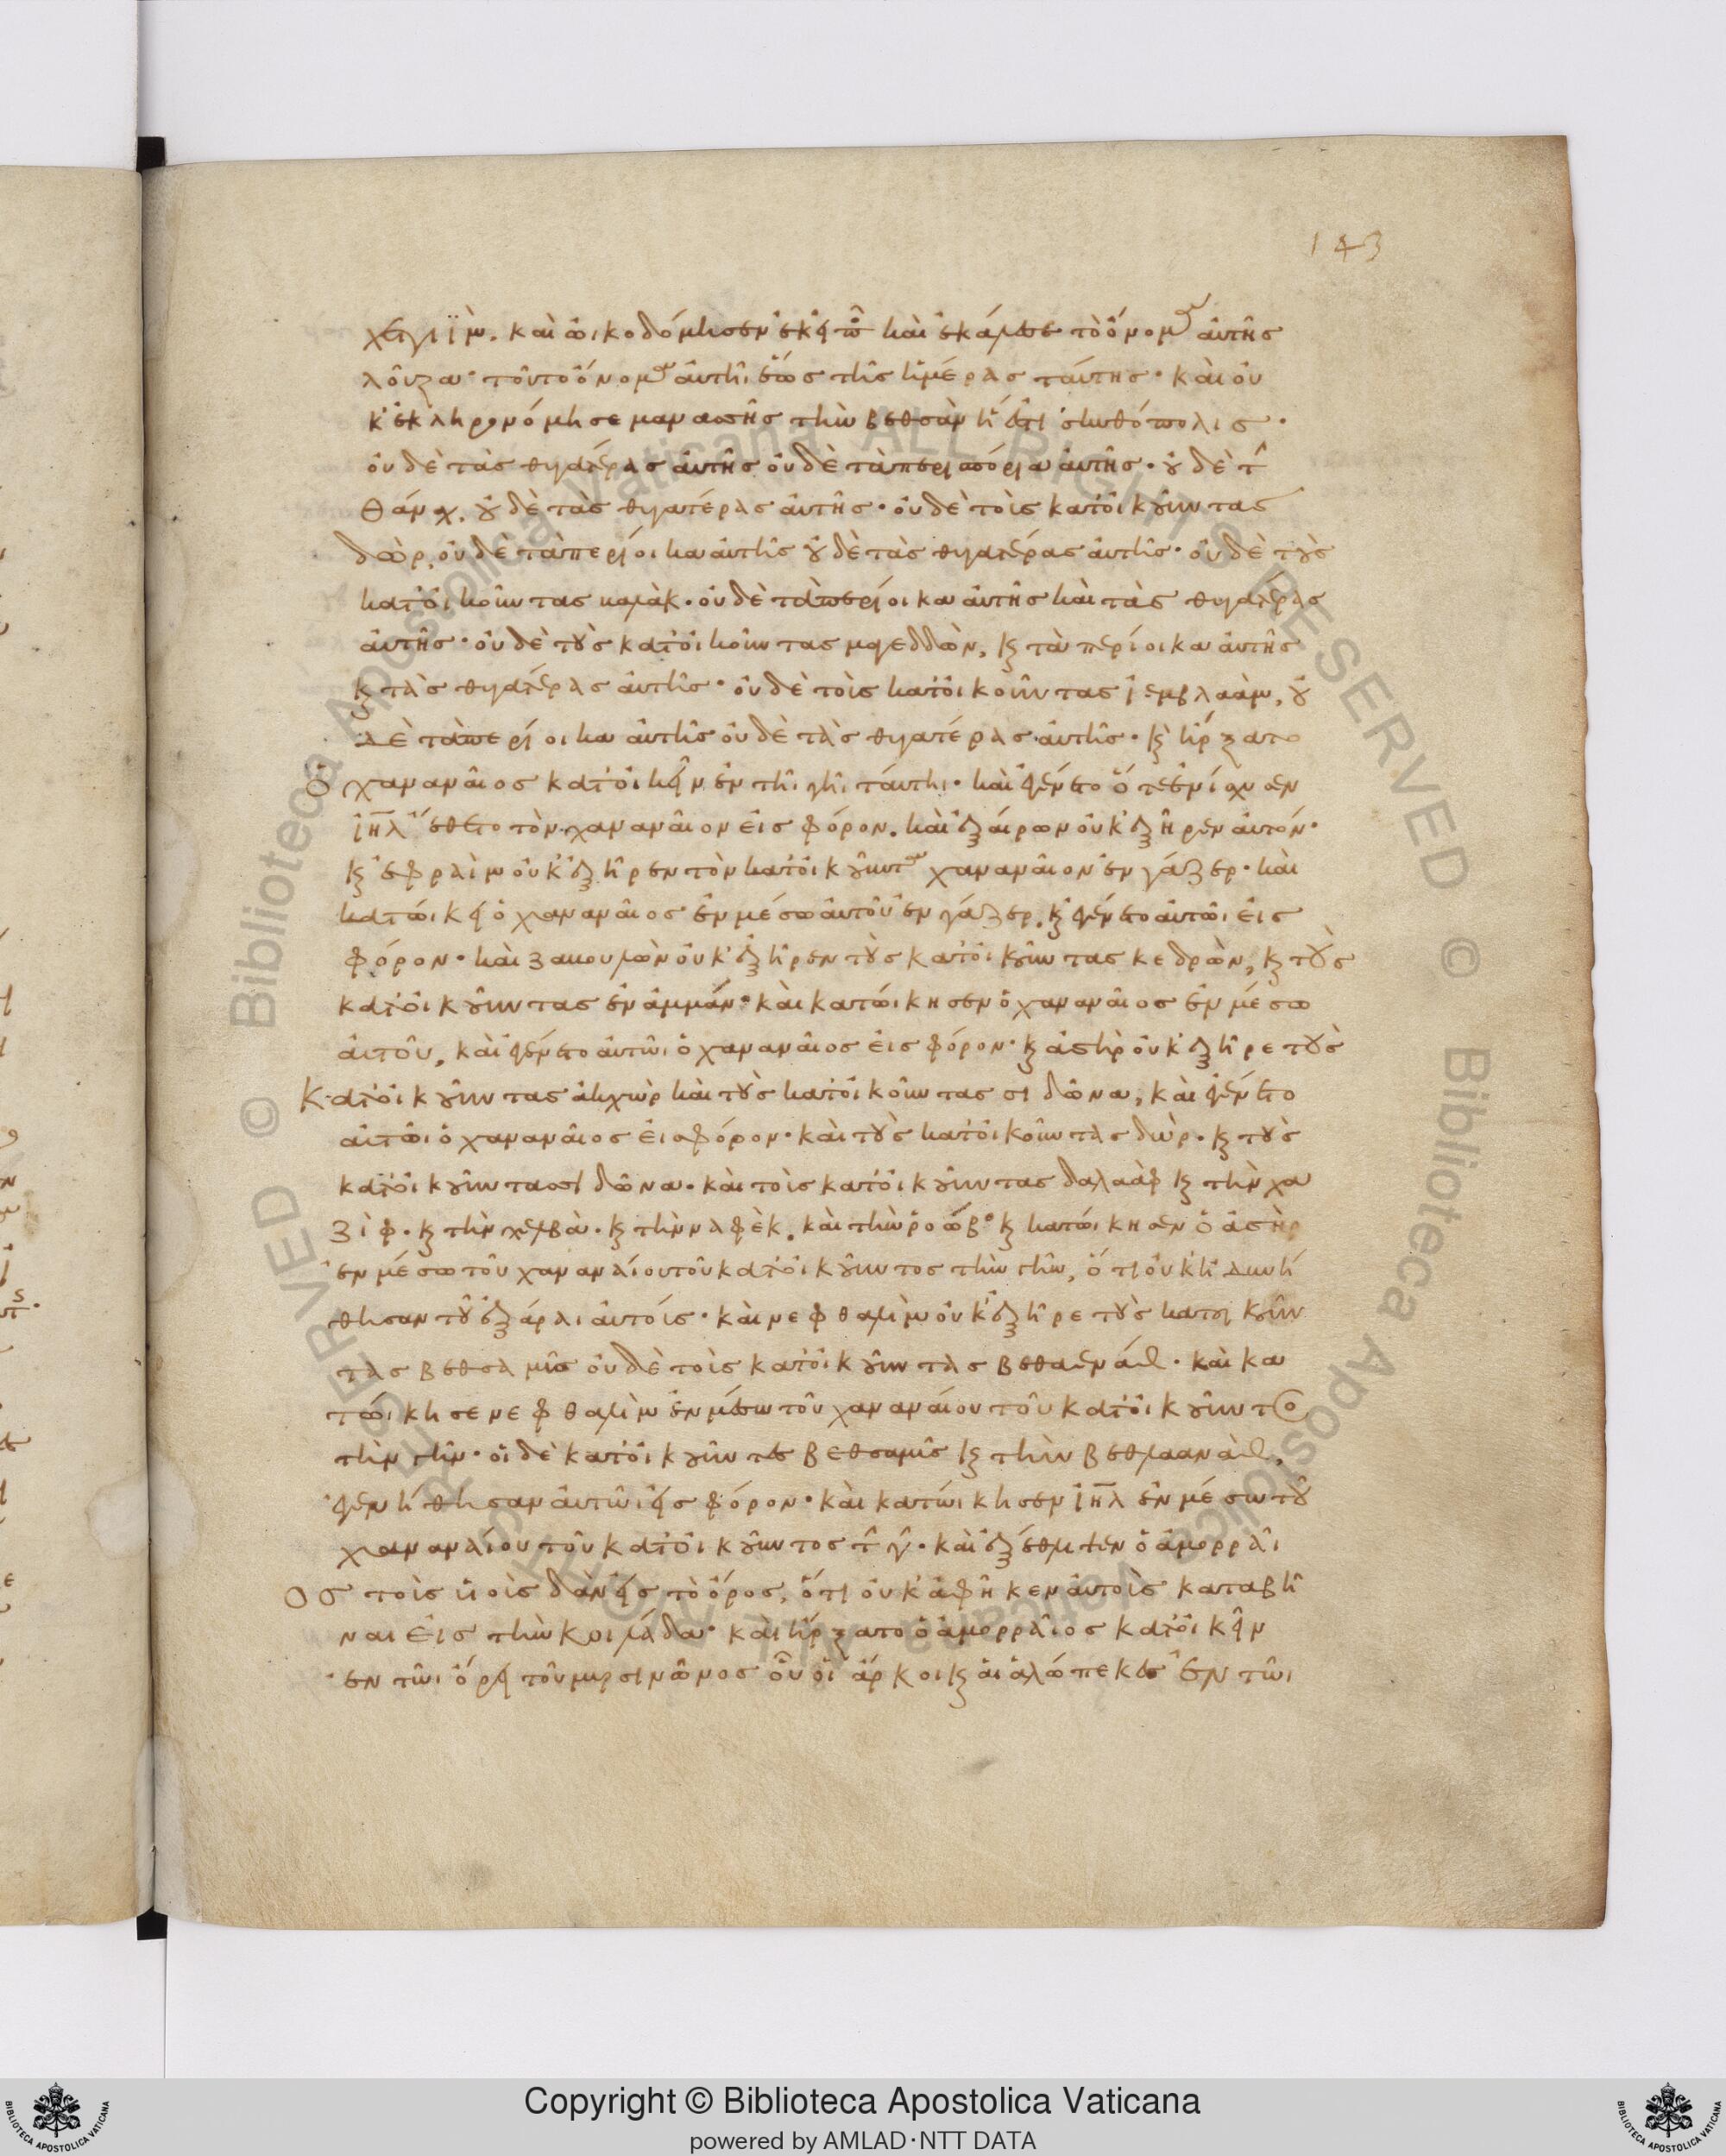 143
χεττιΐμ. καὶ ὠικοδόμησεν ἐκεῖ πόλιν καὶ ἐκάλεσε τὸ ὄνομα ἀυτῆς
λοῦζα· τοῦτο ὄνομα ἀυτῆι ἕως τῆς ἡμέρας τάυτης· καὶ οὐ
κ ἐκληρονόμησε μανασσῆς τὴν βεθσὰν ἥ ἐστι σκυθόπολις·
οὐδὲ τὰς θυγατέρας ἀυτῆς οὐδὲ τὰ περισπόρια ἀυτῆς· οὐδὲ τὴν
θάναχ. οὐδὲ τὰς θυγατέρας ἀυτῆς· οὐδὲ τοῖς κατοικοῦντας
δὼρ. οὐδὲ τὰ περίοικα ἀυτῆς οὐδὲ τὰς θυγατέρας ἀυτῆς· οὐδὲ τοὺς
κατοικοῦντας βαλὰκ· οὐδὲ τὰ περίοικα ἀυτῆς καὶ τὰς θυγατέρας
ἀυτῆς· οὐδὲ τοὺς κατοικοῦντας μαγεδδὼν, καὶ τὰ περίοικα ἀυτῆς
καὶ τὰς θυγατέρας ἀυτῆς· οὐδὲ τοῖς κατοικοῦντας ἰεμβλαὰμ, οὐ
δὲ τὰ περίοικα ἀυτῆς οὐδὲ τὰς θυγατέρας ἀυτῆς· καὶ ἤρξατο
ὁ χαναναῖος κατοικεῖν ἐν τῆι γῆι τάυτηι· καὶ ἐγένετο ὅτε ἐνίσχυσεν
ἰηλ ἔθετο τὸν χαναναῖον εἰς φόρον. καὶ ἐξαίρων οὐκ ἐξῆρεν ἀυτόν·
καὶ ἐφραὶμ οὐκ ἐξῆρεν τὸν κατοικοῦντα χαναναῖον ἐν γάζερ· καὶ
κατώικει ὁ χαναναῖος ἐν μέσω ἀυτοῦ ἐν γάζερ. καὶ ἐγένετο ἀυτῶι εἰς
φόρον· καὶ ζαβουλὼν οὐκ ἐξῆρεν τοὺς κατοικοῦντας κεδρὼν, καὶ τοὺς
κατοικοῦντας ἐν ἀμμάν· καὶ κατώικησεν ὁ χαναναῖος ἐν μέσω
ἀυτοῦ, καὶ ἐγένετο ἀυτῶι ὁ χαναναῖος εἰς φόρον· καὶ ἀσὴρ οὐκ ἐξῆρε τοὺς
κατοικοῦντας ἀκχὼρ καὶ τοὺς κατοικοῦντας σιδῶνα, καὶ ἐγένετο
ἀυτῶι ὁ χαναναῖος εἰς φόρον· καὶ τοὺς κατοικοῦντας δὼρ. καὶ τοὺς
κατοικοῦντας σιδῶνα· καὶ τοῖς κατοικοῦντας δαλαὰφ καὶ τὴν χα
ζὶφ· καὶ τὴν χελβὰ· καὶ τὴν ναφὲκ. καὶ τὴν ροώβ· καὶ κατώικησεν ὁ ἀσὴρ
ἐν μέσω τοῦ χαναναίου τοῦ κατοικοῦντος τὴν γῆν, ὅτι οὐκ ἠδυνή
θησαν τοῦ ἐξάραι ἀυτούς· καὶ νεφθαλὶμ οὐκ ἐξῆρε τοὺς κατοικοῦν
τας βεθσαμῦς οὐδὲ τοῖς κατοικοῦντας βεθαενάθ· καὶ κα
τώικησε νεφθαλὶμ ἐν μέσω τοῦ χαναναίου τοῦ κατοικοῦντος
τὴν γῆν· οἱ δὲ κατοικοῦντες βεθσαμῦς καὶ τὴν βεθλααναθ,
ἐγενήθησαν ἀυτῶι εἰς φόρον· καὶ κατώικησεν ἰηλ ἐν μέσω τοῦ
χαναναίου τοῦ κατοικοῦντος τὴν γῆν· καὶ ἐξέθλιψεν ὁ ἀμορραῖ
ος τοὺς υἱοὺς δὰν εἰς τὸ ὄρος, ὅτι οὐκ ἀφῆκεν ἀυτοὺς καταβῆ
ναι εἰς τὴν κοιλάδα· καὶ ἤρξατο ὁ ἀμορραῖος κατοικεῖν
ἐν τῶι ὄρει τοῦ μυρσινῶνος οὗ οἱ ἄρκοι καὶ ἁι ἀλώπεκες ἐν τῶι
Copyright © Biblioteca Apostolica Vaticana
powered by AMLAD·NTT DATA